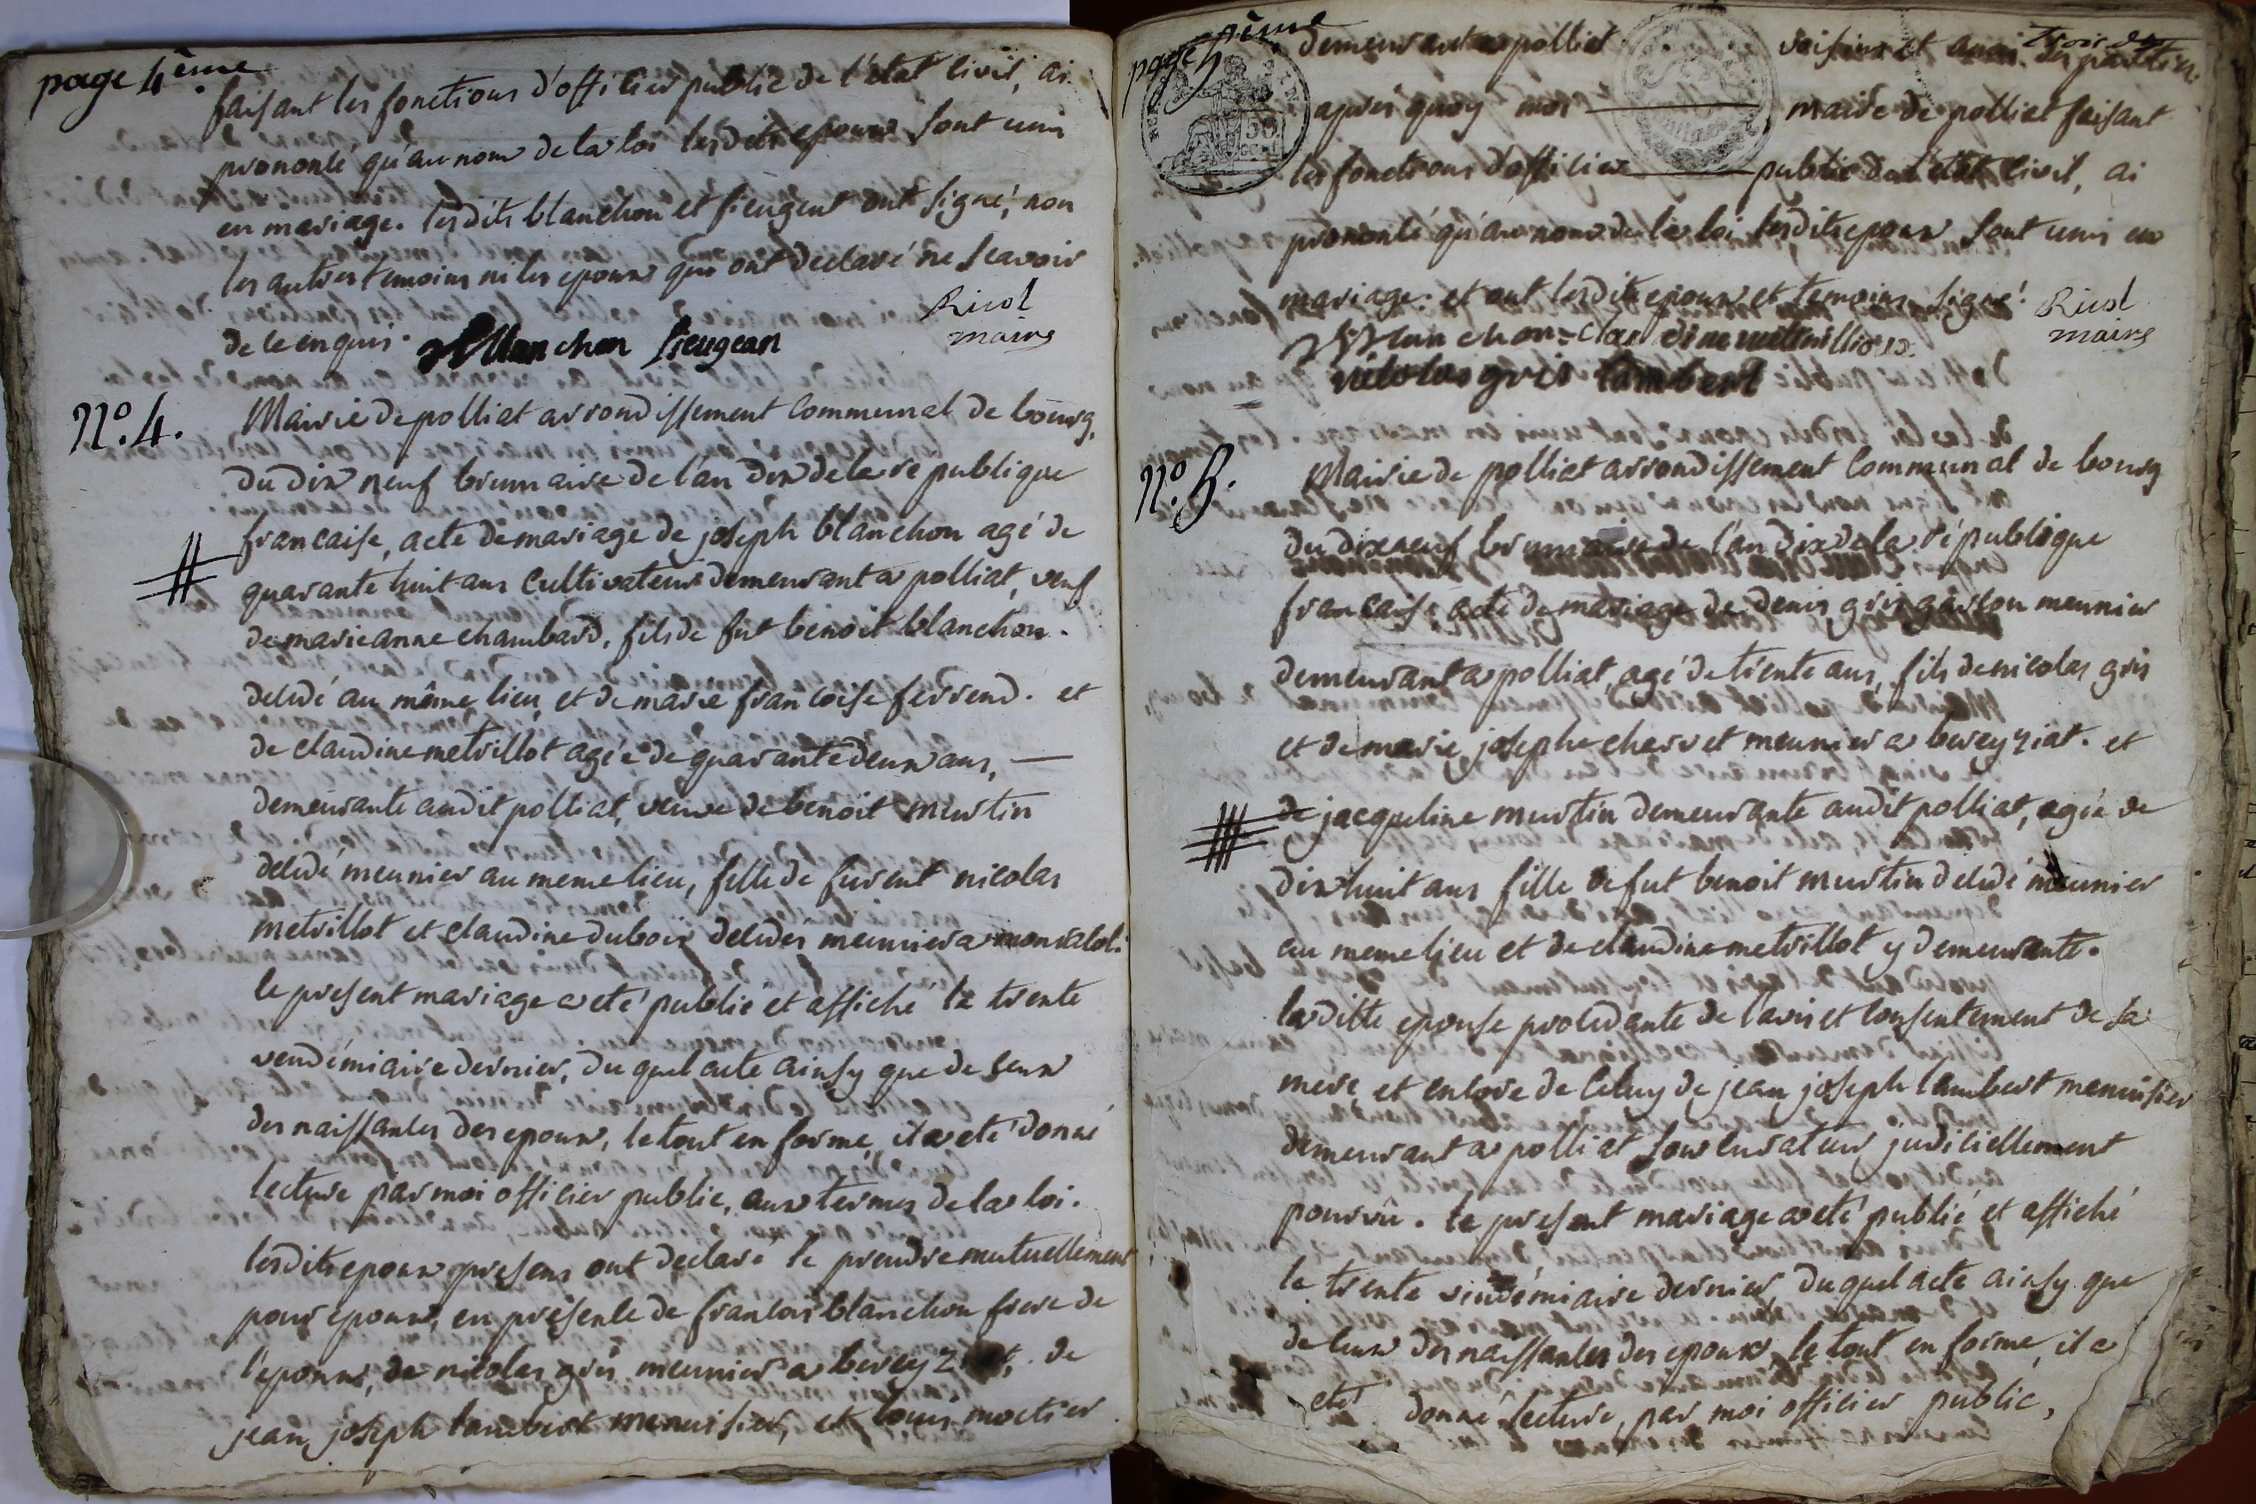 page 4ème
faisant les fonctions d'officier public de l'état civil, ai
prononcé qu'au nom de la loi lesdits epoux sont unis
en mariage. lesdits blanchon et sieugent ont signé, non
les autres temoins ni les epoux qui ont declaré ne scavoir
de ce enquis.
Blanchon sieugean
Ricol
maire
N.o 4.
Mairie de polliat arrondissement communal de bourg,
du dix neuf brumaire de l'an dix de la republique
francaise, acte de mariage de joseph blanchon agé de
quarante huit ans cultivateur demeurant a polliat, veuf
de marieanne chambard, fils de fut benoit blanchon.
decedé au même lieu, et de marie francoise ferrend. et
de claudine metrillot agée de quarante deux ans,
demeurante audit polliat, veuve de benoit murtin
decedé meunier au meme lieu, fille de furent nicolas
metrillot et claudine dubois decedés meuniers a
le present mariage a eté publié et affiché le trente
vendémiaire dernier, du quel acte ainsy que de ceux
des naissances des epoux, le tout en forme, il a eté donné
lecture par moi officier public, aux termes de la loi.
lesdits epoux presens ont declaré se prendre mutuellement
pour epoux, en présence de francois blanchon frere de
l'epoux, de nicolas gris meunier a de
jean joseph lambert menuisier, et louis moctier
page 5ème
demeurant a polliat voisins et amis des parties.
après quoy moi maire de polliat faisant
les fonctions d'officier public de l'état civil, ai
prononcé qu'au nom de la loi lesdits epoux sont unis en
mariage. et ont lesdits epoux et temoins signé.
Blanchon = claudine
nicolas gris lambert
Ricol
maire
N.o 5.
Mairie de polliat arrondissement communal de bourg
du dixneuf brumaire de l'an dix de la république
francaise acte de mariage de denis gris garcon meunier
demeurant a polliat, agé de trente ans, fils de nicolas gris
et de marie josephe chervet meunier a bereyziat. et
de jacqueline murtin demeurante audit polliat, agée de
dix huit ans fille de fut benoit murtin decedé meunier
au meme lieu et de claudine metrillot y demeurante.
laditte epouse procedante de l'avis et consentement de sa
mere, et encore de celuy de jean joseph lambert menuisier
demeurant a polliat son curateur judiciellement
pourvû. le present mariage a eté publié et affiché
le trente vendémiaire dernier, du quel acte ainsy que
de ceux des naissances des epoux, le tout en forme, il a
eté donné lecture, par moi officier public,